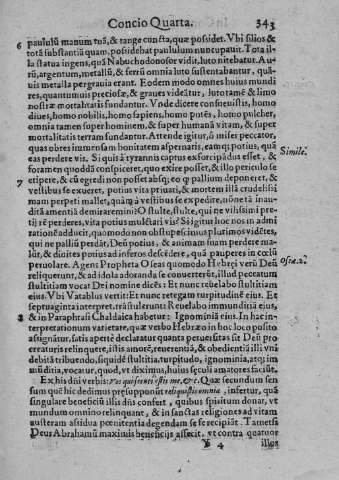 Concio Quarta. 343
6 paululū manum tuā, & tange cuncta, quæ possidet. Vbi filios &
totā substantiā quam possidebat paululum nuncupauit. Tota il-
la statua ingens, quā Nabuchodonosor vidit, luto nitebatur. Au-
rū, argentum, metallū, & ferrū omnia luto sustentabantur, quā-
uis metalla pergrauia erant. Eodem modo omnes huius mundi
res, quantumuis preciosæ, & graues videātur, luto tamē & limo
nostræ mortalitatis fundantur. Vnde dicere consoeuistis, homo
diues, homo nobilis, homo sapiens, homo potēs, homo pulcher,
omnia tamen super hominem, & super humanā vitam, & super
mortalitatis terram fundantur. Attende igitur, ô miser peccator,
quas obres immensam bonitatem aspernaris, eamq; potius, quā
eas perdere vis. Si quis à tyrannis captus ex forcipādus esset, &
Simile.
foramen quoddā conspiceret, quo exire posset, & illo periculo se
7 eripere, & cū egredi non posset absq; eo q pallium deponeret, &
vestibus se exueret, potius vita priuati, & mortem illā crudelissi
mam perpeti mallet, quàm à vestibus se expedire, nōne tā inau-
ditā amentiā demiraremini? O stulte, stulte, qui ne vilissimi pre-
tij rē perderes, vita potius mulctari vis? Si igitur hoc nos in admi
rationē adducit, quamodo non obstupescimus plurimos vidētes,
qui ne palliū perdāt, Deū potius, & animam suam perdere ma-
lūt, & diuites potius ad inferos descēdere, quā pauperes in cœlū
peruolare. Agens Propheta Oseas quomodo Hebræi verū Deū
Ose.2.
reliquerūt, & ad idola adoranda se conuerterūt, illud peccatum
stultitiam vocat Dei nomine dicēs: Et nunc reuelabo stultitiam
eius. Vbi Vatablus vertit: Et nunc retegam turpitudinē eius. Et
septuaginta interpretes trāstulerunt: Reuelabo immunditiā eius,
8 & in Paraphrasi Chaldaica habetur: Ignominiā eius. In hac in-
terpretationum varietate, quæ verbo Hebræo in hoc loco posito
assignātur, satis apertè declaratur quanta peruersitas sit Deū pro
creaturis relinquere, istis amorē, reuerentiā, & obedientiā illi vni
debitā tribuendo, siquidē stultitia, turpitudo, ignominia, atq; im
mūditia, vocatur, quod, vt diximus, huius sęculi amatores faciūt.
Ex his dni verbis: Vos qui secuti estis me, &c. Quæ secundum sen
sum quē hic dedimus præsupponūt reliquistis omnia, infertur, quā
singulare beneficiū illis dn̄s confert, quibus spiritum donat, vt
mundum omnino relinquant, & in sanctas religiones ad vitam
austeram assidua pœnitentia degendam se se recipiāt. Tametsi
Deus Abrahamū maximis beneficijs affecit, vt contra quatuor
4 illos